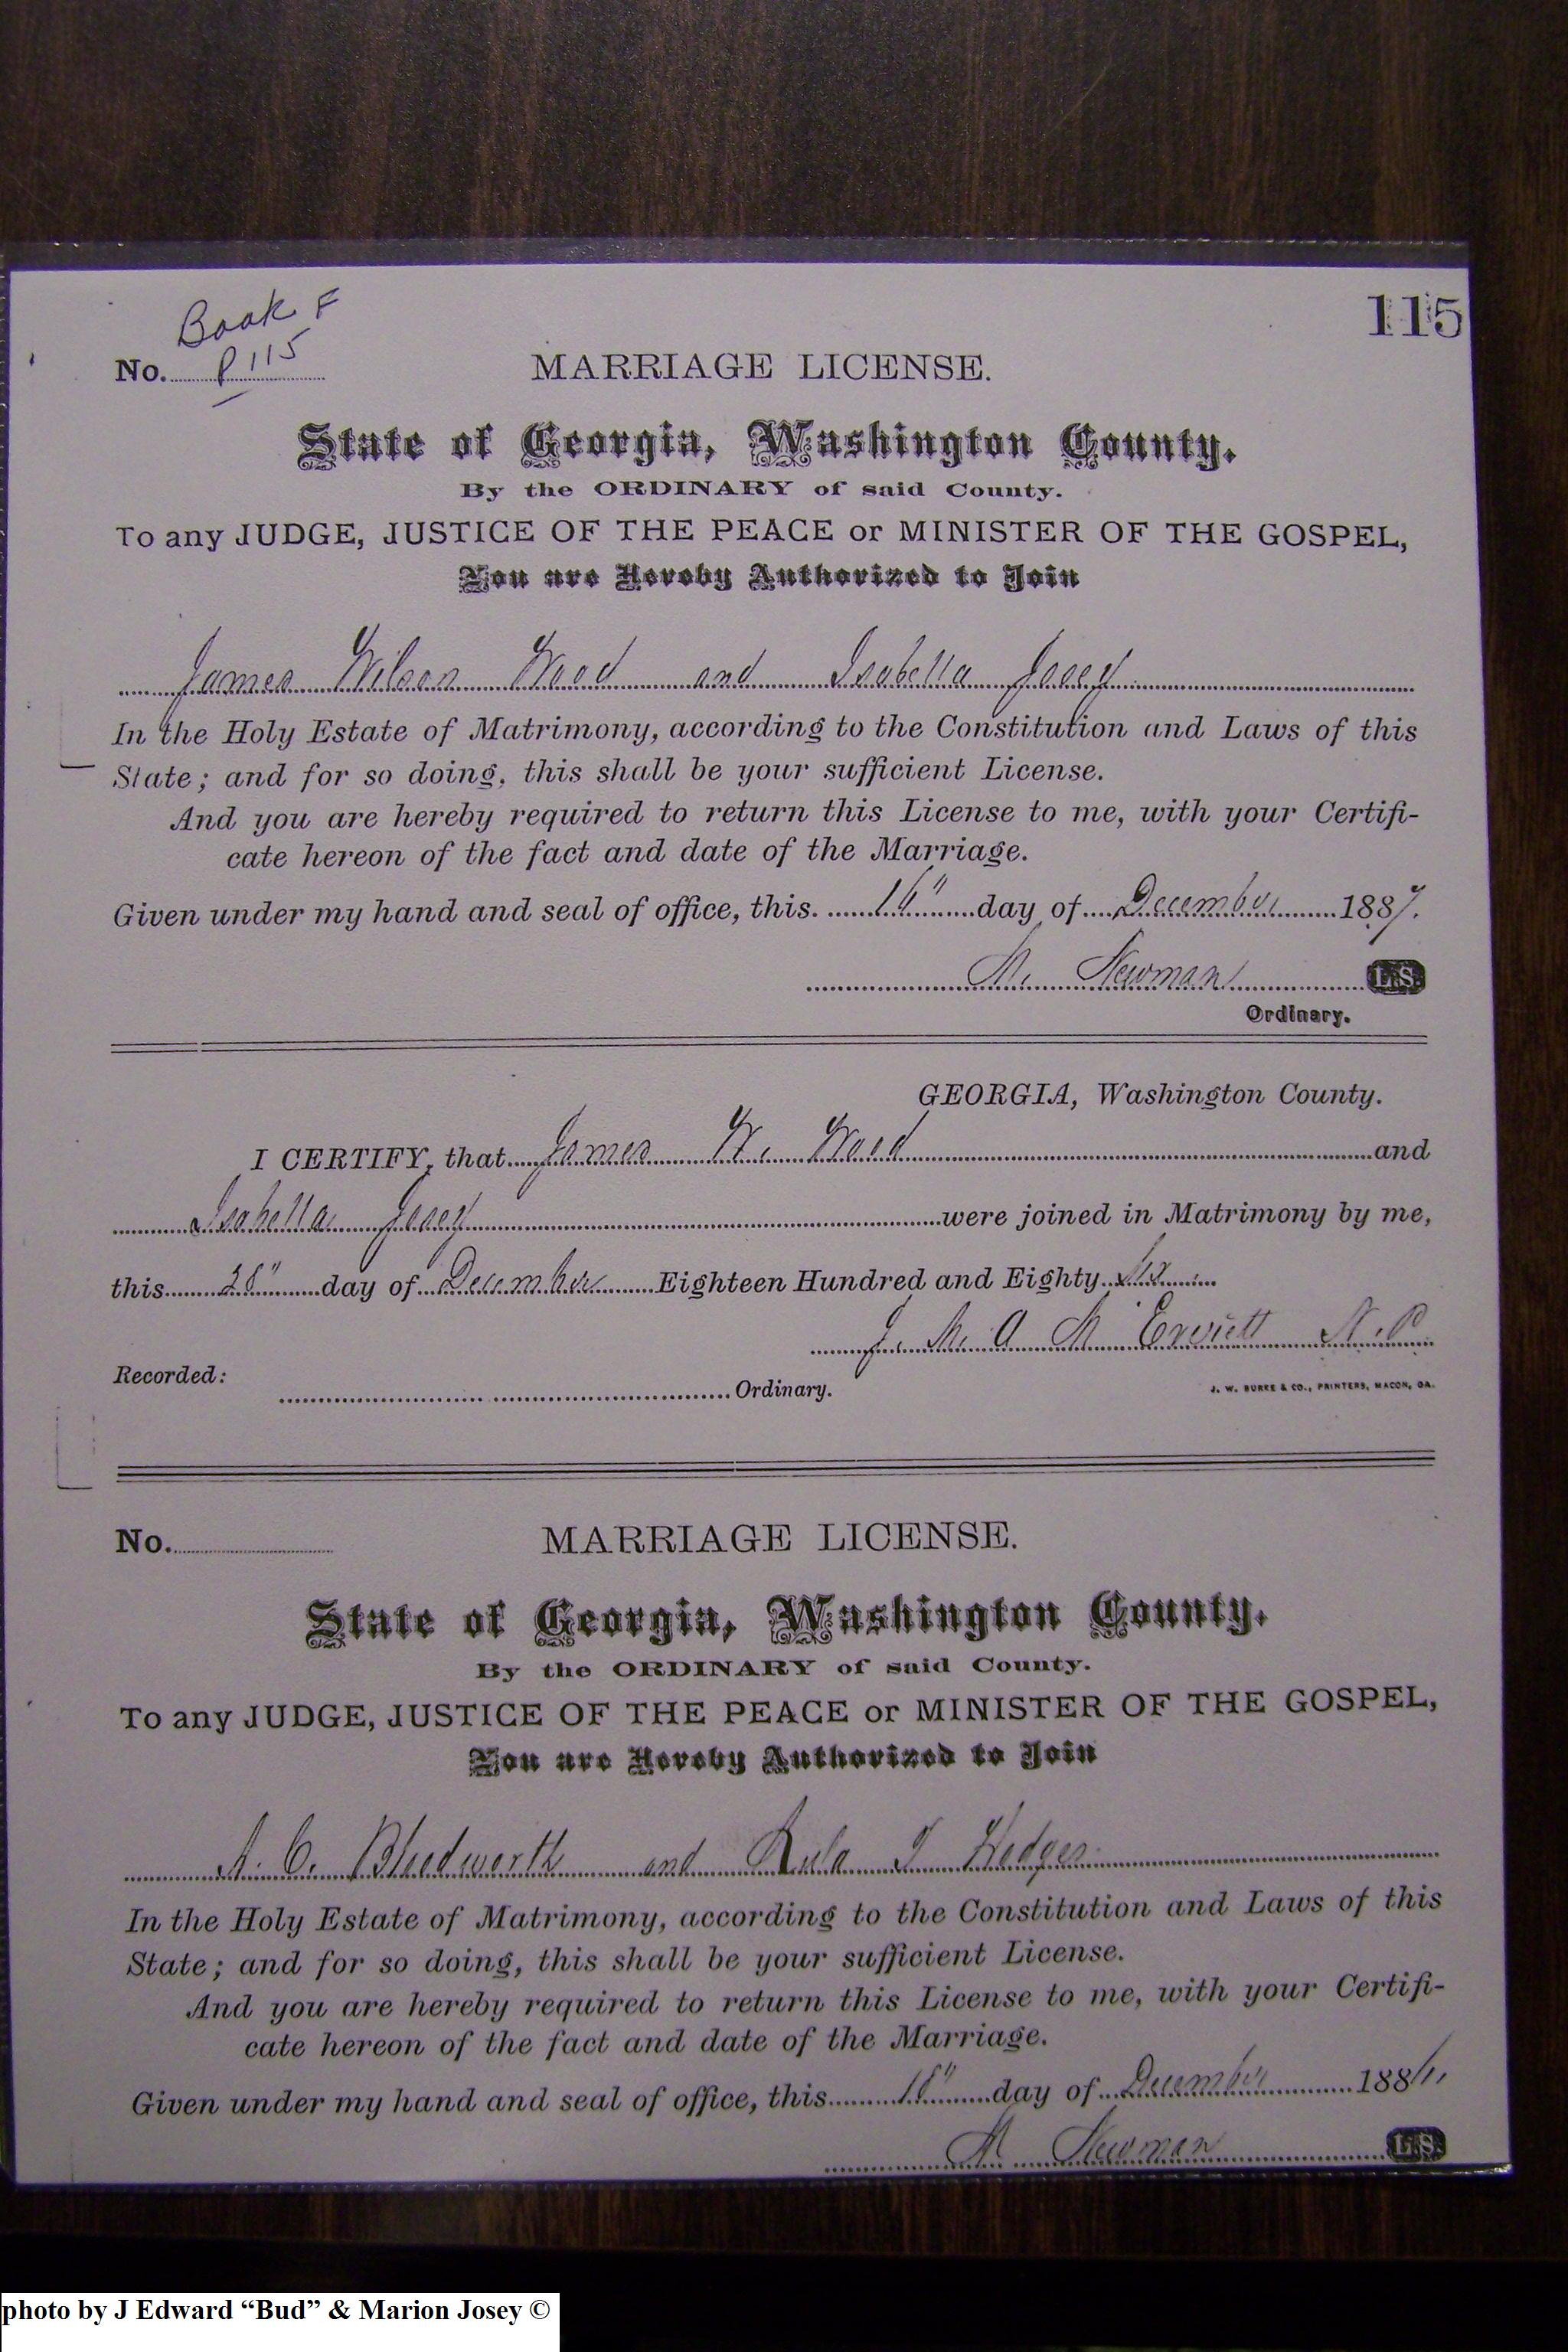 115
Book F
No. P 115
MARRIAGE LICENSE.
State of Georgia, Washington County.
By the ORDINARY of said County.
To any JUDGE, JUSTICE OF THE PEACE or MINISTER OF THE GOSPEL,
You are Hereby Authorized to Join
James Wilson Wood and Isabella Josey
In the Holy Estate of Matrimony, according to the Constitution and Laws of this
State; and for so doing, this shall be your sufficient License.
And you are hereby required to return this License to me, with your Certifi-
cate hereon of the fact and date of the Marriage.
Given under my hand and seal of office, this 16" day of December 1887.
M. Newman L.S.
Ordinary.
GEORGIA, Washington County.
I CERTIFY, that James W. Wood and
Isabella Josey were joined in Matrimony by me,
this 28" day of December Eighteen Hundred and Eighty Six
J. M. A M N.P.
Recorded: Ordinary.
J. W. BURKE & CO., PRINTERS, MACON, GA.
No.
MARRIAGE LICENSE.
State of Georgia, Washington County.
By the ORDINARY of said County.
To any JUDGE, JUSTICE OF THE PEACE or MINISTER OF THE GOSPEL,
You are Hereby Authorized to Join
A. C. Bloodworth and T Hodges
In the Holy Estate of Matrimony, according to the Constitution and Laws of this
State; and for so doing, this shall be your sufficient License.
And you are hereby required to return this License to me, with your Certifi-
cate hereon of the fact and date of the Marriage.
Given under my hand and seal of office, this day of December 188
M Newman L.S.
photo by J Edward “Bud” & Marion Josey ©